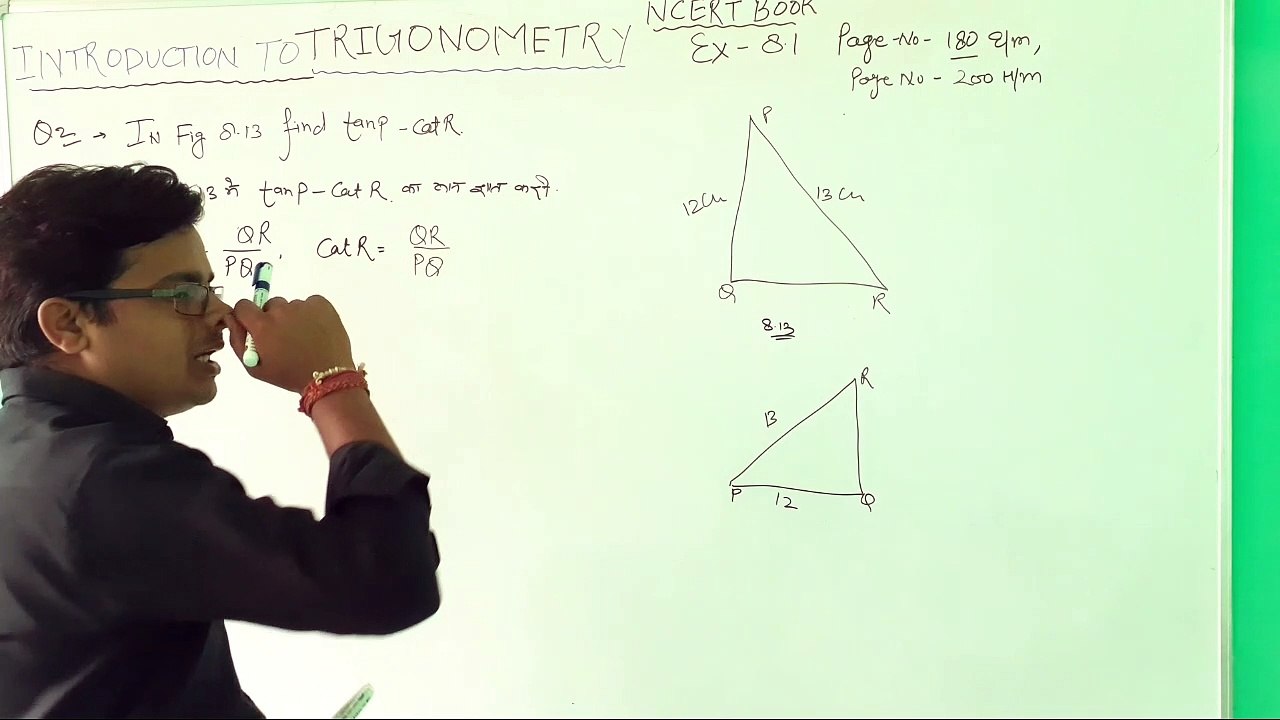 INTRODUCTION TO TRIGONOMETRY
NCERT BOOK
Ex - 8.1
Page-No- 180 E/m,
Page No - 200 H/m
Q2 → IN Fig 8.13 find tanp - Cot R.
3 में tanP - Cot R. का मान ज्ञात करो.
QR
PQ , Cot R = QR
PQ
P
12 Cm
13 Cm
Q
R
8.13
R
13
P
12
Q